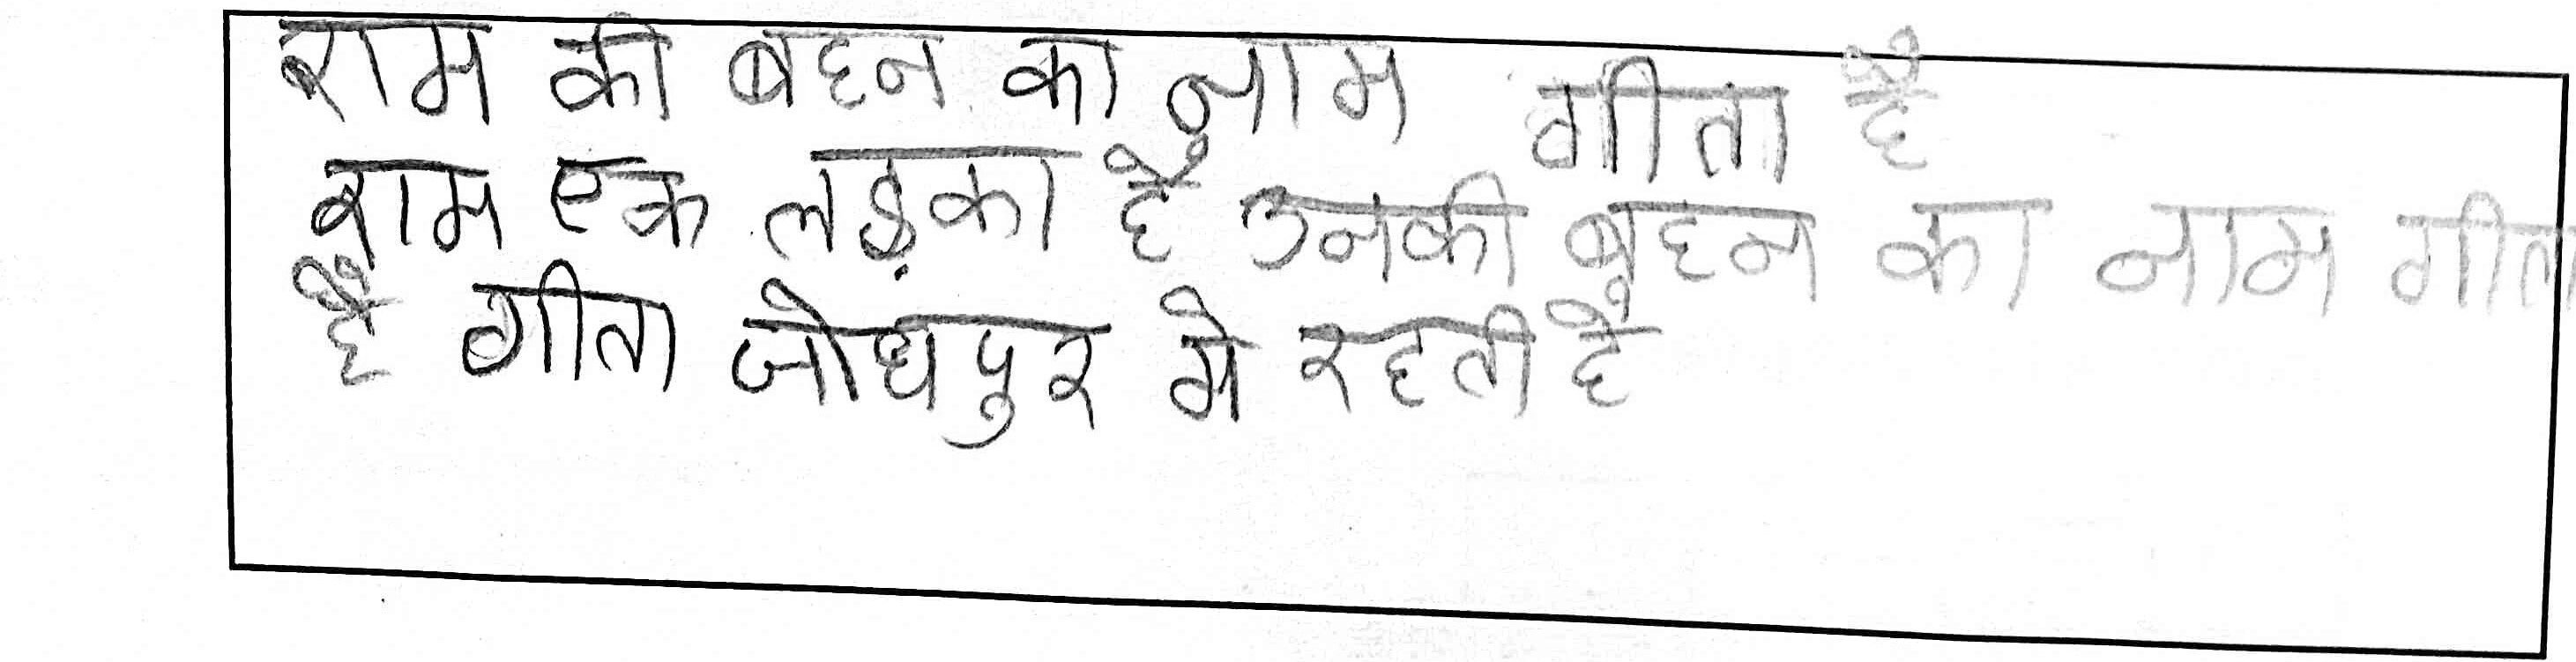 राम की बहन का नाम गीता है
राम एक लड़का है उनकी बहन का नाम गीता
है गीता जोधपुर मे रहती है